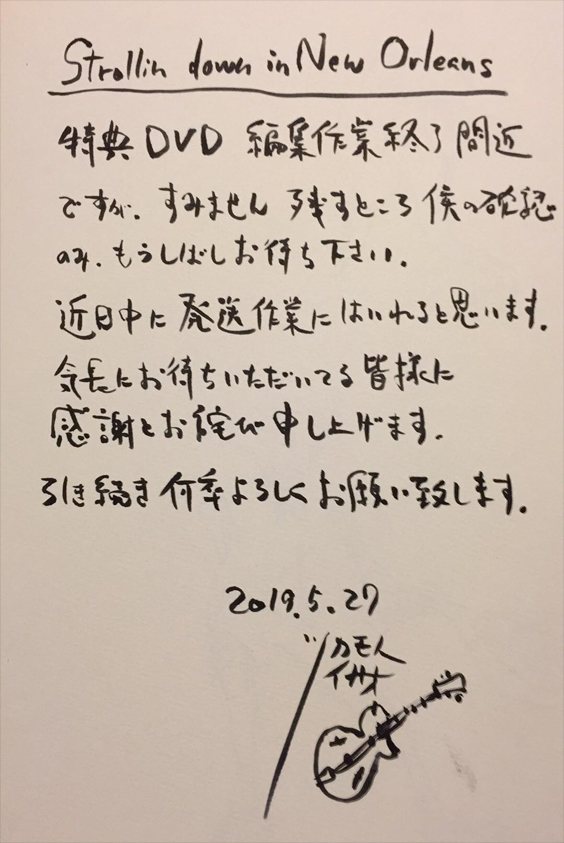 Strollin down in New Orleans
特典DVD 編集作業終了間近
ですが、すみません 残すところ僕の確認
のみ、もうしばしお待ち下さい.
近日中に発送作業にはいれると思います.
気長にお待ちいただいてる皆様に
感謝とお詫び申し上げます.
引き続き何卒よろしくお願い致します.
2019.5.27
カモト
イサオ